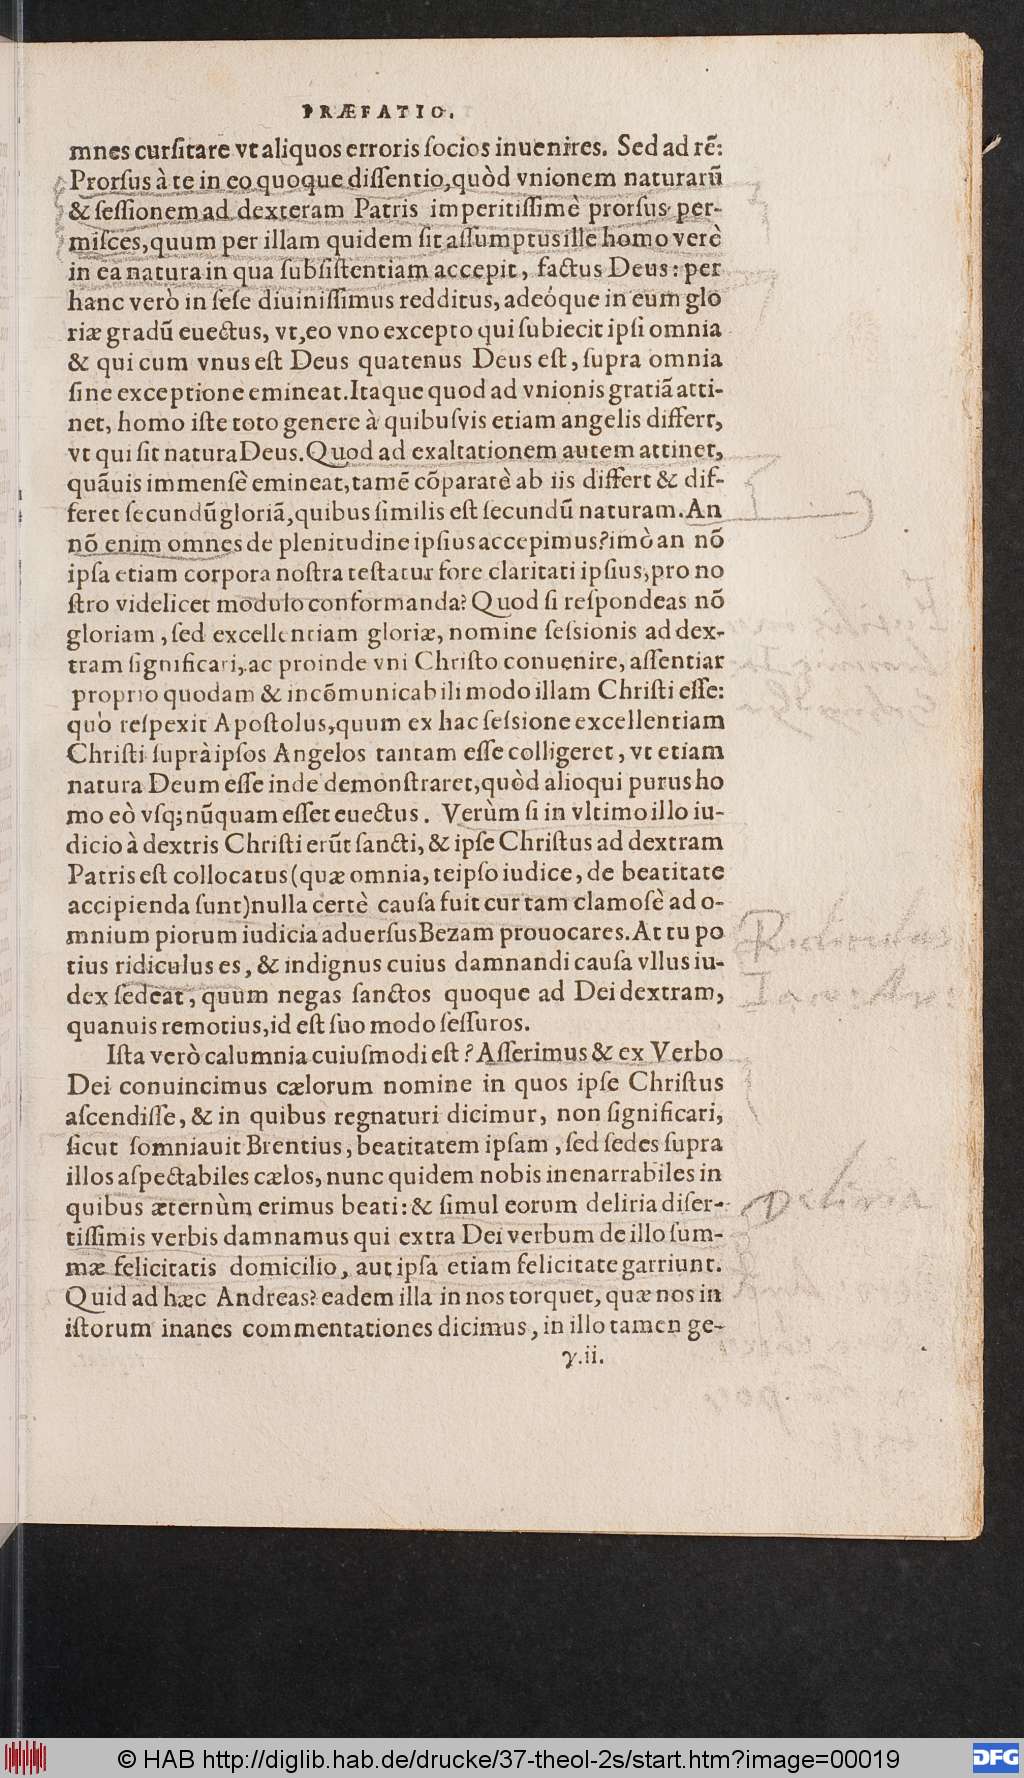 PRÆFATIO.
mnes curſitare vt aliquos erroris ſocios inuenires. Sed ad rẽ:
Prorſus à te in eo quoque diſſentio, quòd vnionem naturarũ
& ſeſſionem ad dexteram Patris imperitiſſimè prorſus per-
miſces, quum per illam quidem ſit aſſumptus ille homo verè
in ea natura in qua ſubſiſtentiam accepit, factus Deus: per
hanc verò in ſeſe diuiniſſimus redditus, adeóque in eum glo
riæ gradũ euectus, vt, eo vno excepto qui ſubiecit ipſi omnia
& qui cum vnus eſt Deus quatenus Deus eſt, ſupra omnia
ſine exceptione emineat. Itaque quod ad vnionis gratiã atti-
net, homo iſte toto genere à quibuſvis etiam angelis differt,
vt qui ſit natura Deus. Quod ad exaltationem autem attinet,
quãuis immenſè emineat, tamẽ cõparatè ab iis differt & dif-
feret ſecundũ gloriã, quibus ſimilis eſt ſecundũ naturam. An
nõ enim omnes de plenitudine ipſius accepimus? imò an nõ
ipſa etiam corpora noſtra teſtatur fore claritati ipſius, pro no
ſtro videlicet modulo conformanda? Quod ſi reſpondeas nõ
gloriam, ſed excellentiam gloriæ, nomine ſeſsionis ad dex-
tram ſignificari, ac proinde vni Chriſto conuenire, aſſentiar
proprio quodam & incõmunicabili modo illam Chriſti eſſe:
quò reſpexit Apoſtolus, quum ex hac ſeſsione excellentiam
Chriſti ſupra ipſos Angelos tantam eſſe colligeret, vt etiam
natura Deum eſſe inde demonſtraret, quòd alioqui purus ho
mo eò vſq; nũquam eſſet euectus. Verùm ſi in vltimo illo iu-
dicio à dextris Chriſti erũt ſancti, & ipſe Chriſtus ad dextram
Patris eſt collocatus (quæ omnia, teipſo iudice, de beatitate
accipienda ſunt) nulla certè cauſa fuit cur tam clamoſè ad o-
mnium piorum iudicia aduerſus Bezam prouocares. At tu po
tius ridiculus es, & indignus cuius damnandi cauſa vllus iu-
dex ſedeat, quum negas ſanctos quoque ad Dei dextram,
quanuis remotius, id eſt ſuo modo ſeſſuros.
Iſta verò calumnia cuiuſmodi eſt? Aſſerimus & ex Verbo
Dei conuincimus cælorum nomine in quos ipſe Chriſtus
aſcendiſſe, & in quibus regnaturi dicimur, non ſignificari,
ſicut ſomniauit Brentius, beatitatem ipſam, ſed ſedes ſupra
illos aſpectabiles cælos, nunc quidem nobis inenarrabiles in
quibus æternùm erimus beati: & ſimul eorum deliria diſer-
tiſſimis verbis damnamus qui extra Dei verbum de illo ſum-
mæ felicitatis domicilio, aut ipſa etiam felicitate garriunt.
Quid ad hæc Andreas? eadem illa in nos torquet, quæ nos in
iſtorum inanes commentationes dicimus, in illo tamen ge-
γ.ii.
Ridiculus
Iac. An:
Deliria
© HAB http://diglib.hab.de/drucke/37-theol-2s/start.htm?image=00019
DFG